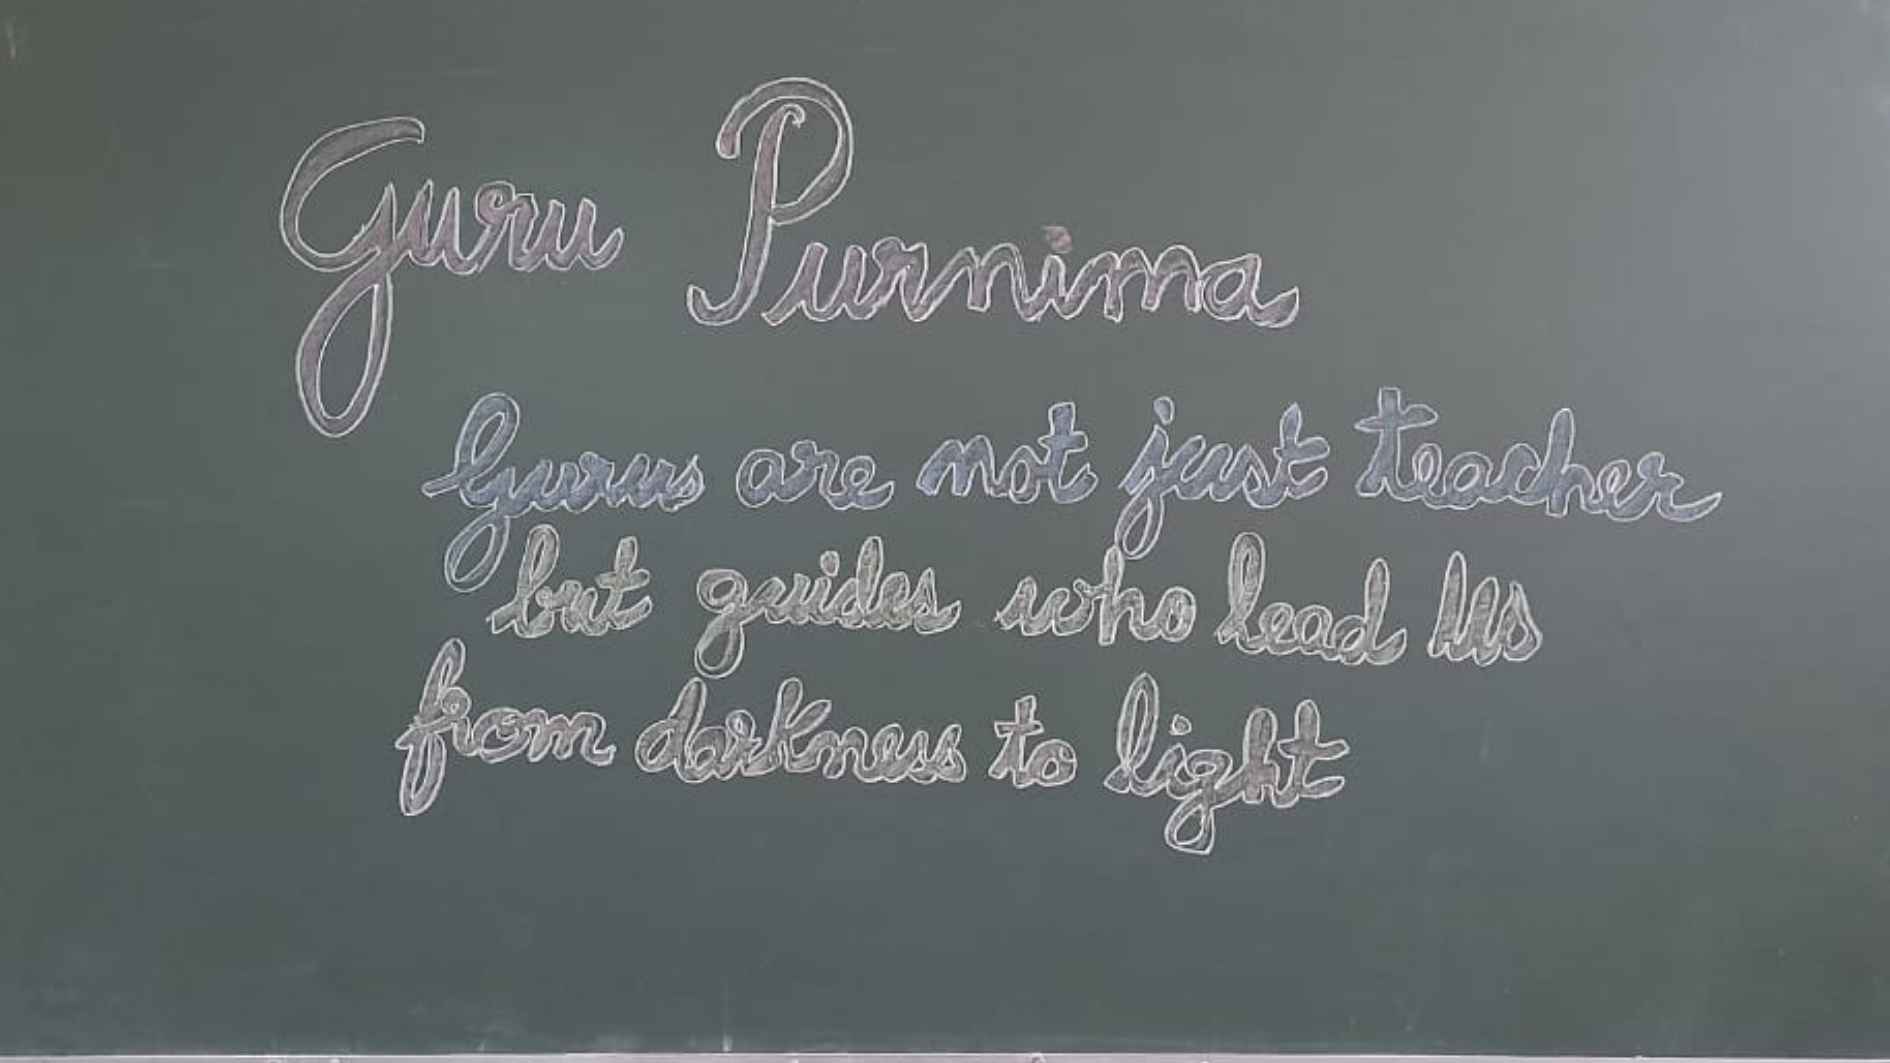 Guru Purnima
Gurus are not just teacher
but guides who lead Us
from darkness to light